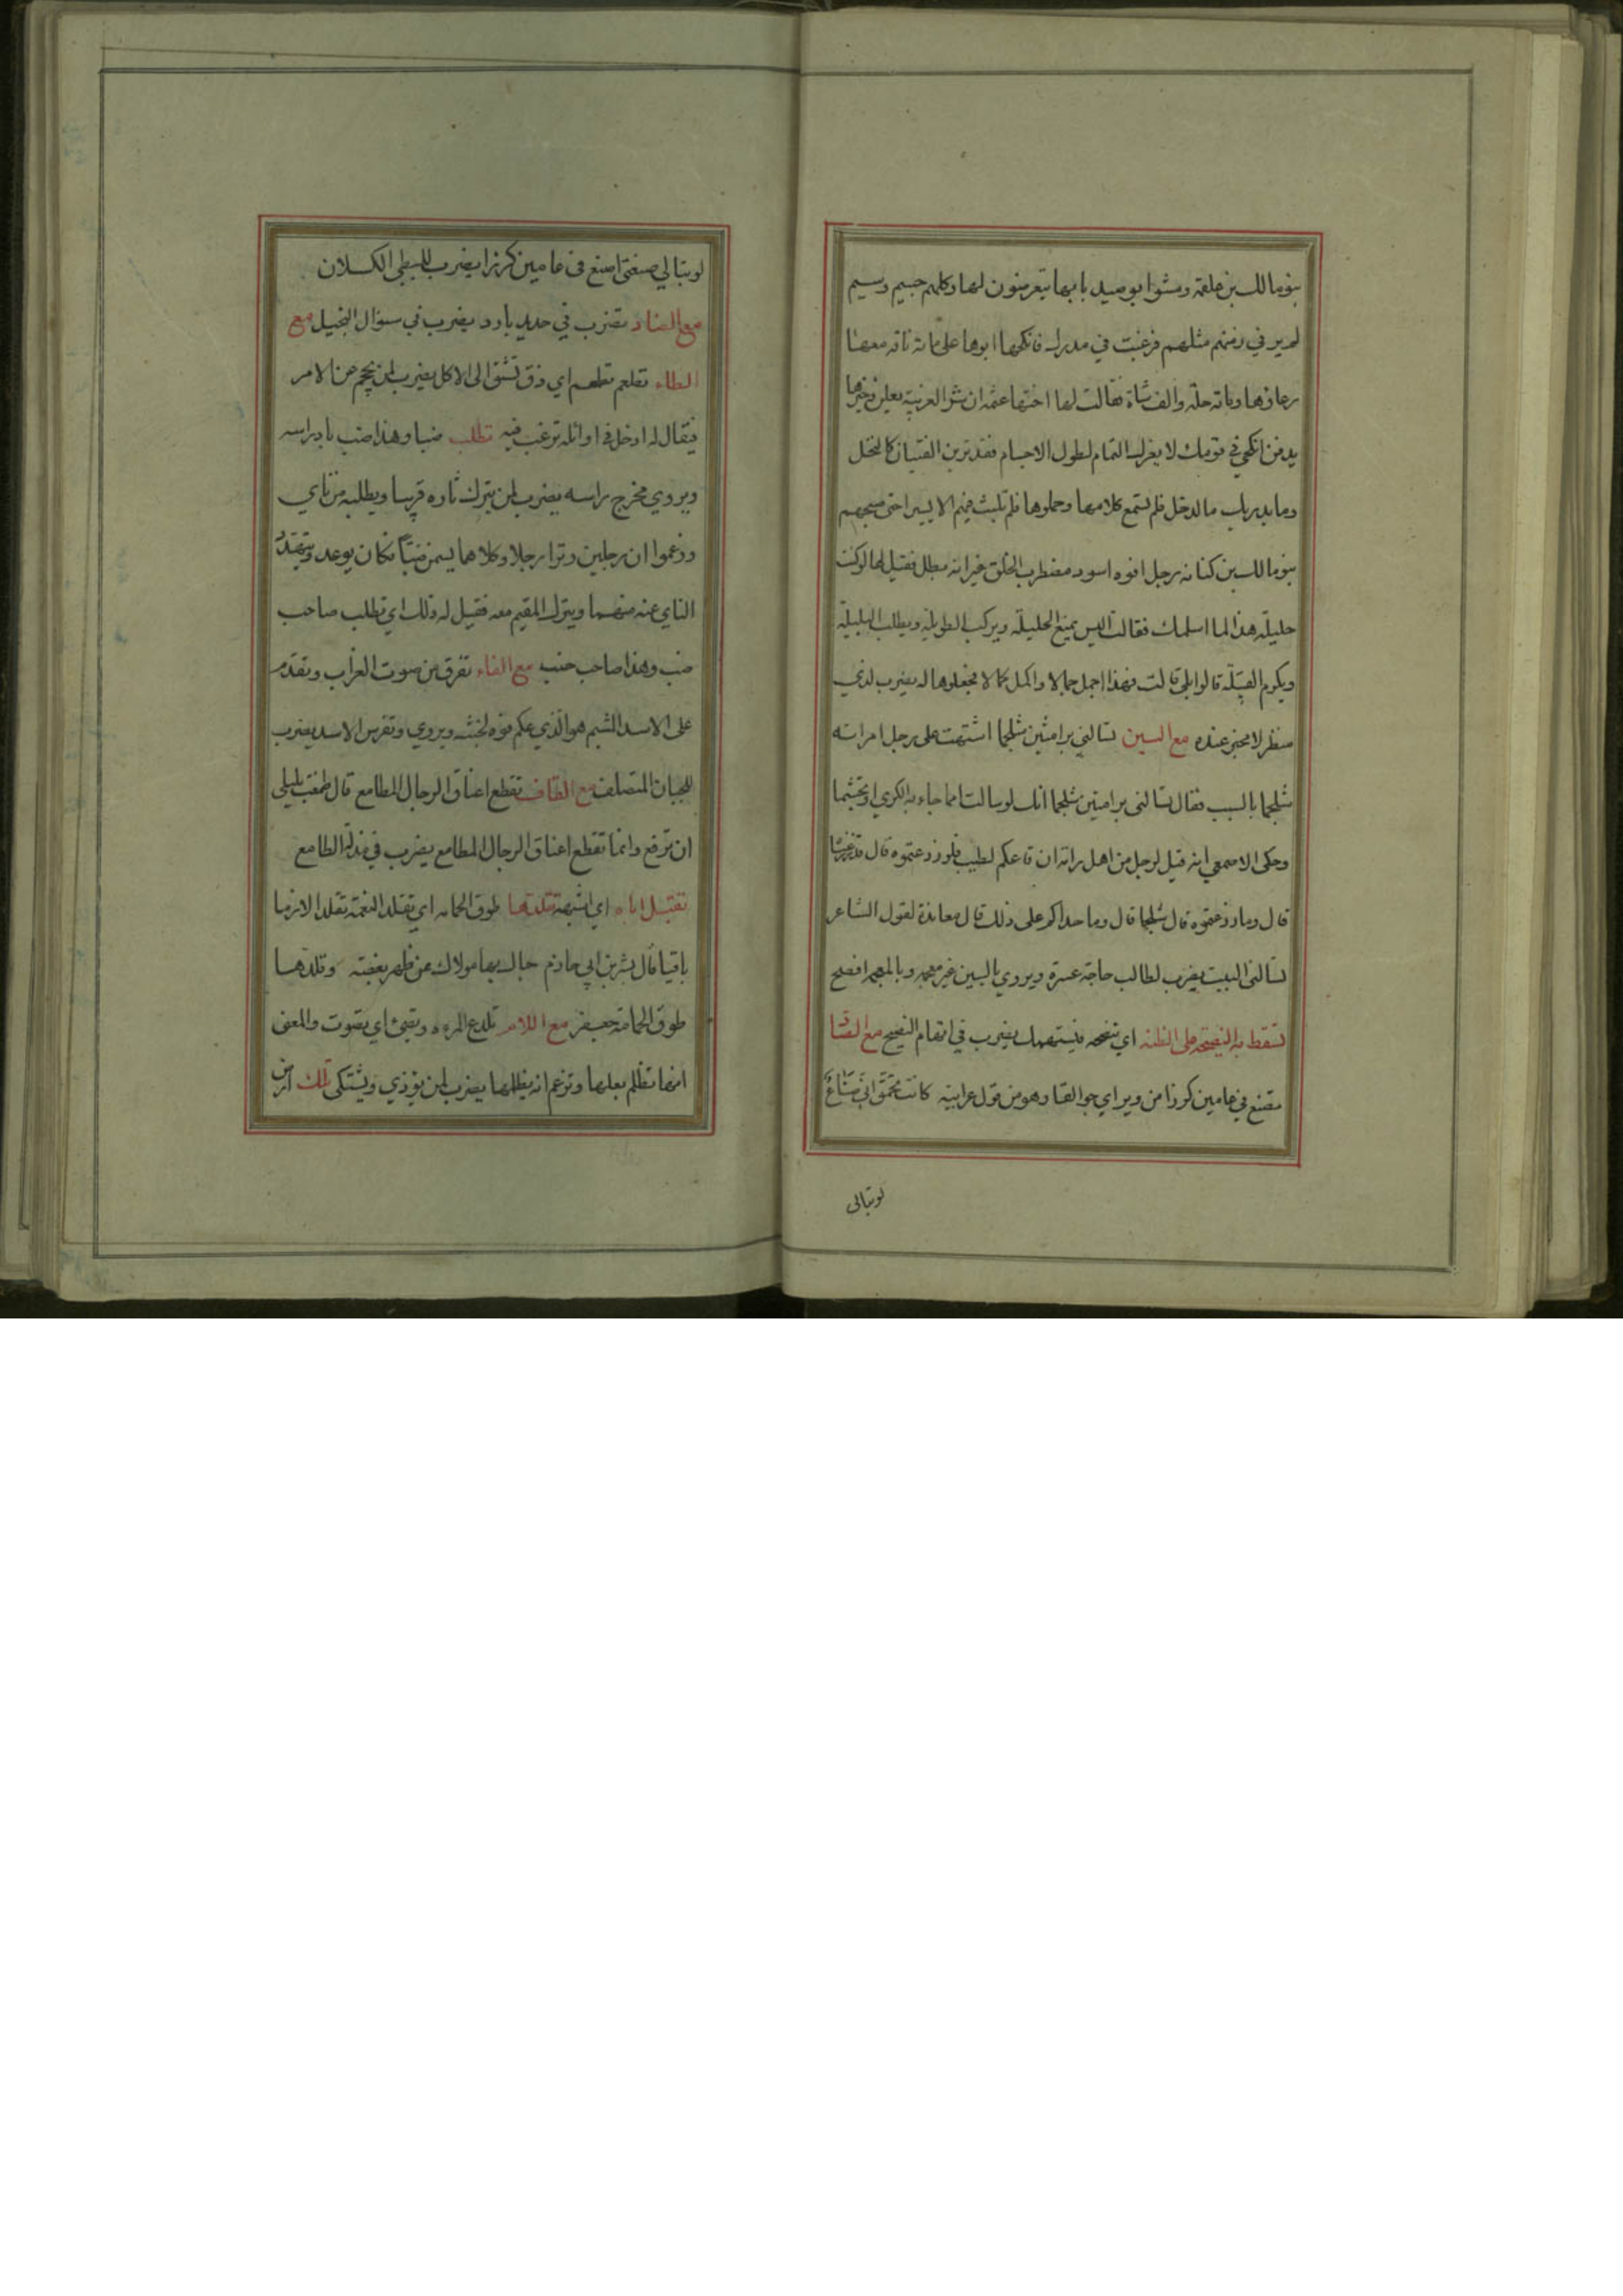 بنو مالك بن علقمة ومشوا بوصيد بابها يتعرضون لها وكلهم جسيم وسيم
لم ير في زمنهم مثلهم فرغبت في مدرك فانكحها ابوها على مائة ناقة معها
رعاؤها ومائة حلة والف شاة فقالت لها اختها عثمة ان شر الغريبة يعلن وخيرها
يدفن انكحي في قومك لا يغرك التمام لطول الاجسام فقد ترين الفتيان كالنخل
وما يدريك ما الدخل فلم تسمع كلامها وحملوها فلم تلبث فيهم الا يسيرا حتى صبحهم
بنو مالك بن كنانة رجل افوه اسود مضطرب الخلق غير انه بطل فقيل لها لو كنت
حليلة هذا لما اسلمك فقالت اليس يمنع الحليلة ويركب الطويلة ويطلب
ويكرم القبيلة قالوا بلى قالت فهذا اجمل جمالا واكمل كمالا فجعلوها له يضرب لذي
منظر لا مخبر عنده مع السين تسالني برامتين شلجما اشتهت على رجل امراته
شلجما بالسبب فقال تسالني برامتين شلجما انك لو سالت امما جاء به الكري او تجشما
وحكى الاصمعي انه قيل لرجل من اهل رامة ان قاعكم لطيب فلو زرعتموه قال قد زرعناه
قال وما زرعتموه قال شلجما قال وما حداكم على ذلك قال معاندة لقول الشاعر
تسالني البيت يضرب لطالب حاجة عسرة ويروي بالسين غير معجمة وبالمعجم افصح
تسقط به النصيحة على الظنة اي تنصحه فيتهمك يضرب في اتهام النصيح مع الصاد
تصنع في عامين كرزا من وبر اي جوالقا وهو من قول عرابية كانت تحمق اني صناع
لو تبالي
لو تبالي صنعتي اصنع في عامين كرزا يضرب للبطي الكسلان
مع الضاد تضرب في حديد بارد يضرب في سؤال البخيل مع
الطاء تطعم تطعم اي ذق تشتق الى الاكل يضرب لمن يحجم عن الامر
فيقال له ادخل في اوائله ترغب فيه تطلب ضبا وهذا ضب باد راسه
ويروي مخرج راسه يضرب لمن يترك ثاره قريبا ويطلبه من ناي
وزعموا ان رجلين وترا رجلا وكلاهما يسمى ضبا فكان يوعد ويتهدد
الناي عنه منهما ويترك المقيم معه فقيل له ذلك اي تطلب صاحب
ضب وهذا صاحب ضب مع الفاء تفرق من صوت الغراب وتقدم
على الاسد الشبم هو الذي عكم فوه لخبثه ويروي وتفرس الاسد يضرب
للجبان المتصلف مع القاف تقطع اعناق الرجال المطامع قال طمعت بليلى
ان تريع وانما تقطع اعناق الرجال المطامع يضرب في مذلة الطامع
تقيل اباه اي اشبهه تقلدها طوق الحمامة اي تقلد النعمة تقلدا لازما
باقيا قال بشر بن ابي حازم حباك بها مولاك عن ظهر بغضة وقلدها
طوق الحمامة جعفر مع اللام تلدع المرء وتصيء اي تصوت والمعنى
انها تظلم بعلها وتزعم انه يظلمها يضرب لمن يؤذي ويشتكي تلك ارض